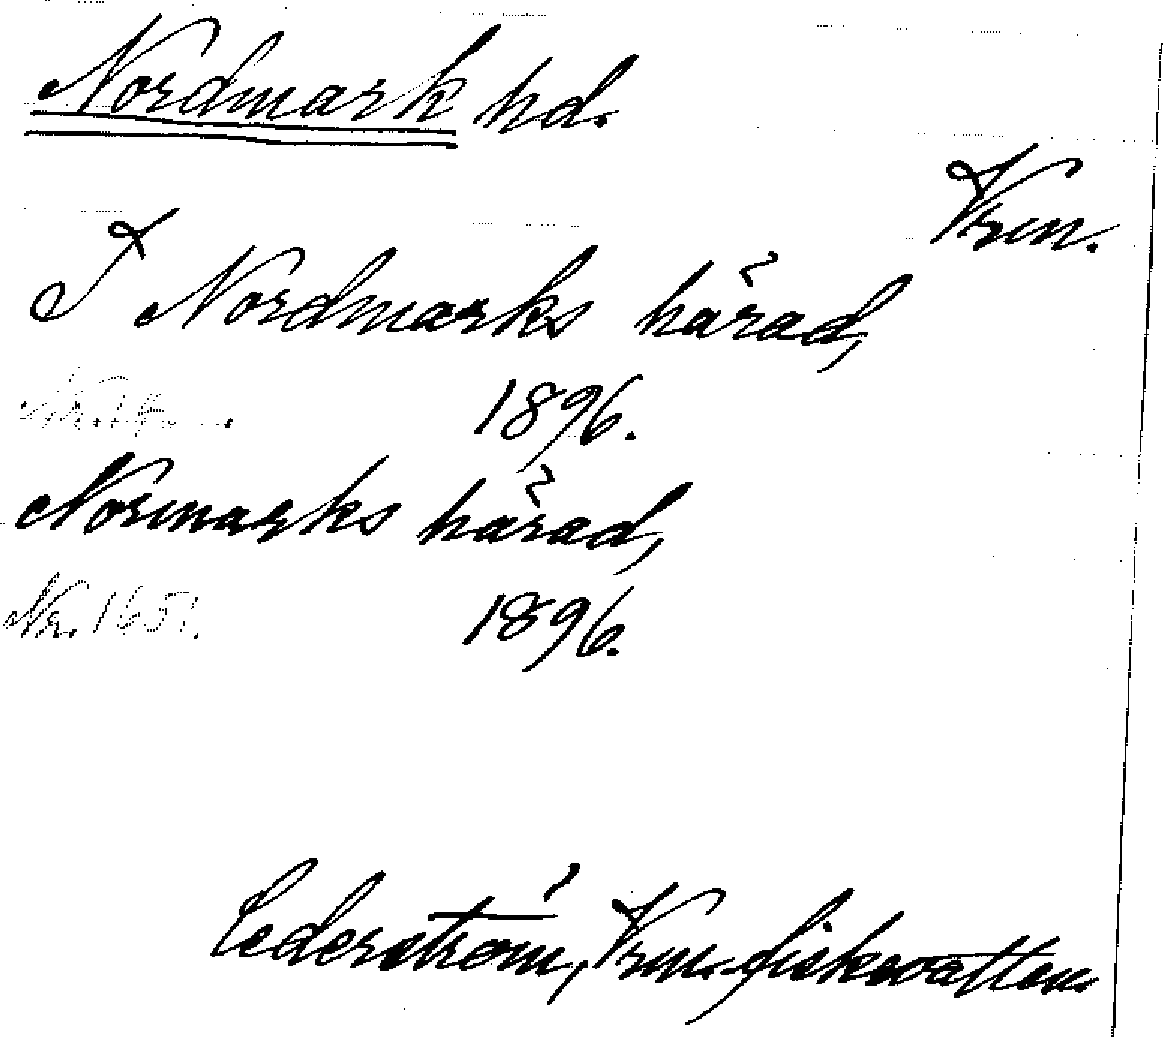 Nordmark hd.
Vrm.
I Nordmarks härad,
1896.
Normarks härad,
Nr. 1651.
1896.
Cederström, Vrm. fiskevatten.